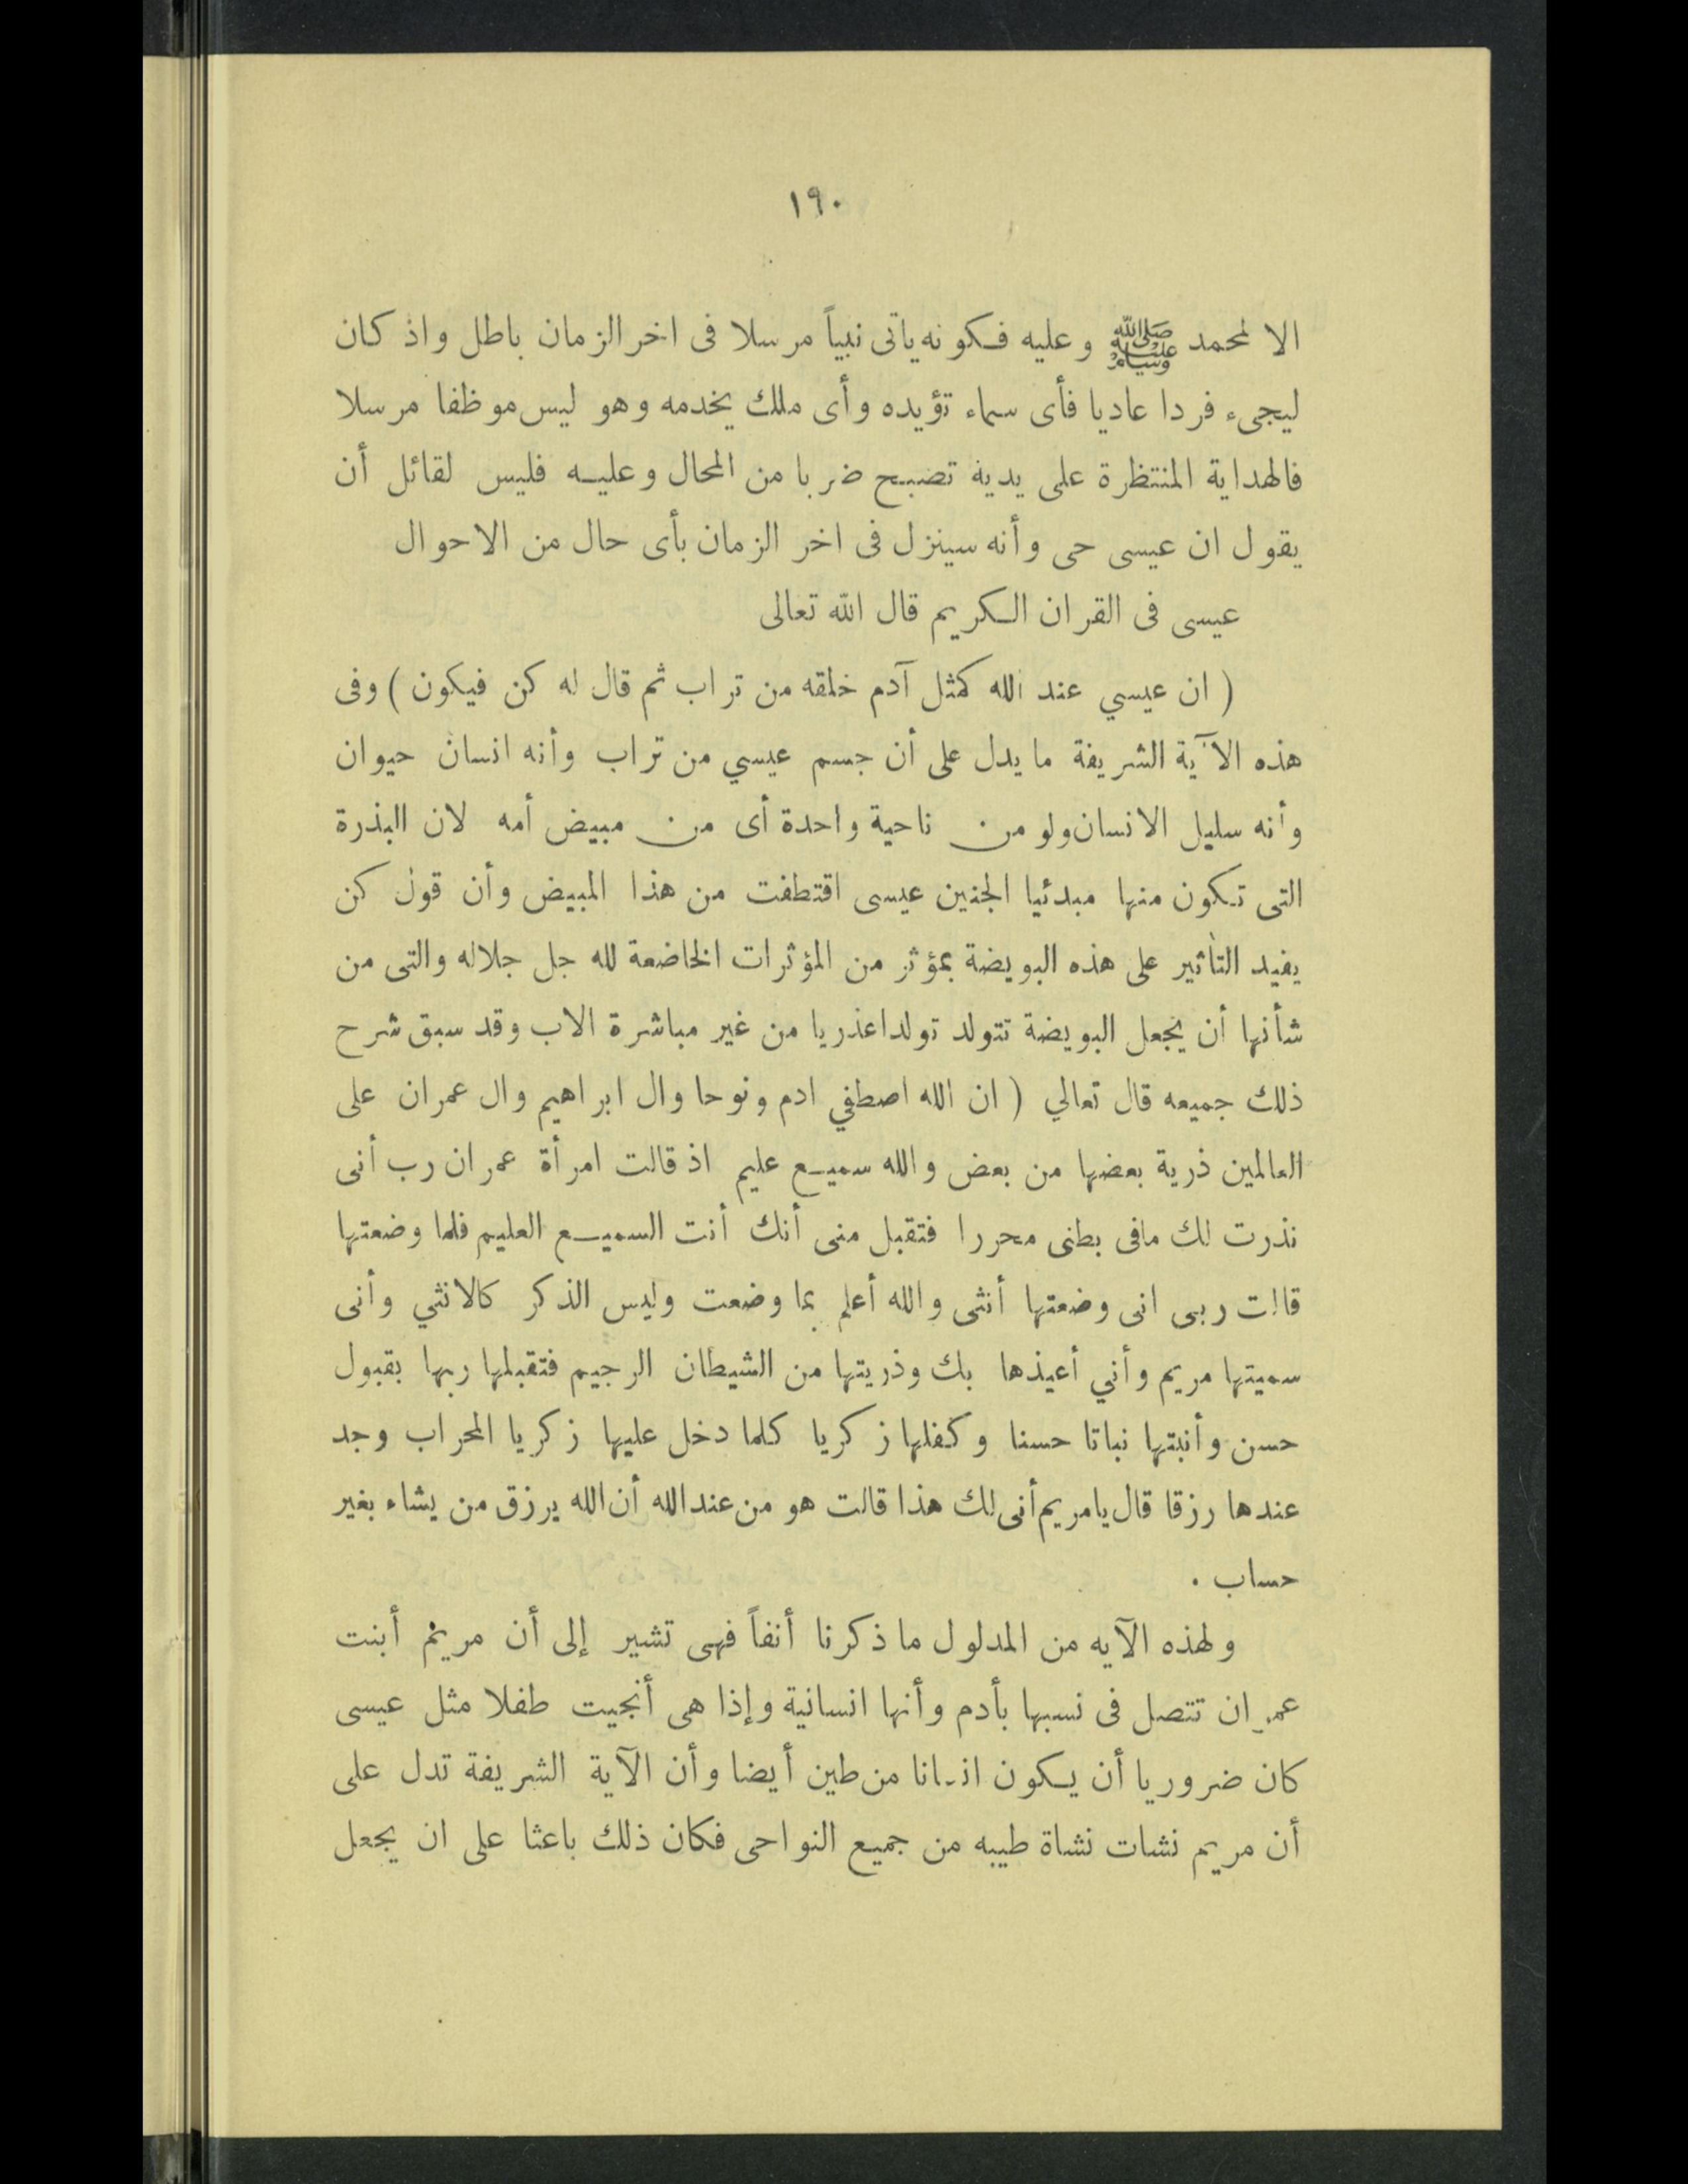 ١٩٠
الا لمحمد ﷺ وعليه فكونه ياتى نبياً مرسلا فى اخر الزمان باطل واذ كان
ليجىء فردا عاديا فأى سماء تؤيده وأى ملك يخدمه وهو ليس موظفا مرسلا
فالهداية المنتظرة على يدية تصبح ضربا من المحال وعليه فليس لقائل أن
يقول ان عيسى حى وأنه سينزل فى اخر الزمان بأى حال من الاحوال
عيسى فى القران الكريم قال الله تعالى
( ان عيسي عند الله كمثل آدم خلقه من تراب ثم قال له كن فيكون ) وفى
هذه الآية الشريفة ما يدل على أن جسم عيسي من تراب وأنه انسان حيوان
وأنه سليل الانسان ولو من ناحية واحدة أى من مبيض أمه لان البذرة
التى تكون منها مبدئيا الجنين عيسى اقتطفت من هذا المبيض وأن قول كن
يفيد التأثير على هذه البويضة بمؤثر من المؤثرات الخاضعة لله جل جلاله والتى من
شأنها أن يجعل البويضة تتولد تولدا عذريا من غير مباشرة الاب وقد سبق شرح
ذلك جميعه قال تعالي ( ان الله اصطفي ادم ونوحا وال ابراهيم وال عمران على
العالمين ذرية بعضها من بعض والله سميع عليم اذ قالت امرأة عمران رب أنى
نذرت لك مافى بطنى محررا فتقبل منى أنك أنت السميع العليم فلما وضعتها
قالت ربى انى وضعتها أنثى والله أعلم بما وضعت وليس الذكر كالانثي وأنى
سميتها مريم وأني أعيذها بك وذريتها من الشيطان الرجيم فتقبلها ربها بقبول
حسن وأنبتها نباتا حسنا وكفلها زكريا كلما دخل عليها زكريا المحراب وجد
عندها رزقا قال يامريم أنى لك هذا قالت هو من عند الله أن الله يرزق من يشاء بغير
حساب .
ولهذه الآيه من المدلول ما ذكرنا أنفاً فهى تشير إلى أن مريم أبنت
عمران تتصل فى نسبها بأدم وأنها انسانية وإذا هى أنجيت طفلا مثل عيسى
كان ضروريا أن يكون انسانا من طين أيضا وأن الآية الشريفة تدل على
أن مريم نشات نشاة طيبه من جميع النواحى فكان ذلك باعثا على ان يجعل